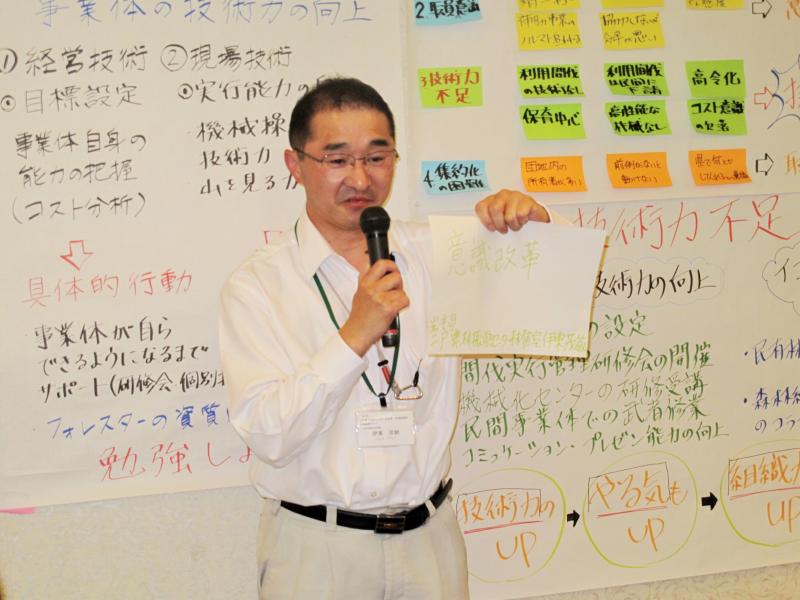 事業体の技術力の向上
① 経営技術 ② 現場技術
◎目標設定
◎実行能力の
事業体自身の
能力の把握
(コスト分析)
・機械操
技術力
山を見る力
具体的行動
・事業体が自ら
できるようになるまで
サポート(研修会 個別
・フォレスターの資質
勉強しよ
2.職員意識
3技術力
不足
利用間伐
の技術なし
利用間伐
は民間に
下請
高令化
保育中心
高性能な
機械なし
コスト意識
の欠落
4.集約化
の困難
団地内の
所有者が多い
前例がないと
動けない
意識改革
技術力不足
技術力の向上
の設定
間伐実行管理研修会の開催
機械化センターの研修受講
民間事業体での武者修業
コミュニケーション・プレゼン能力の向上
・民有林
・森林組
のコラ
技術力の
UP
やる気も
UP
組織力
UP